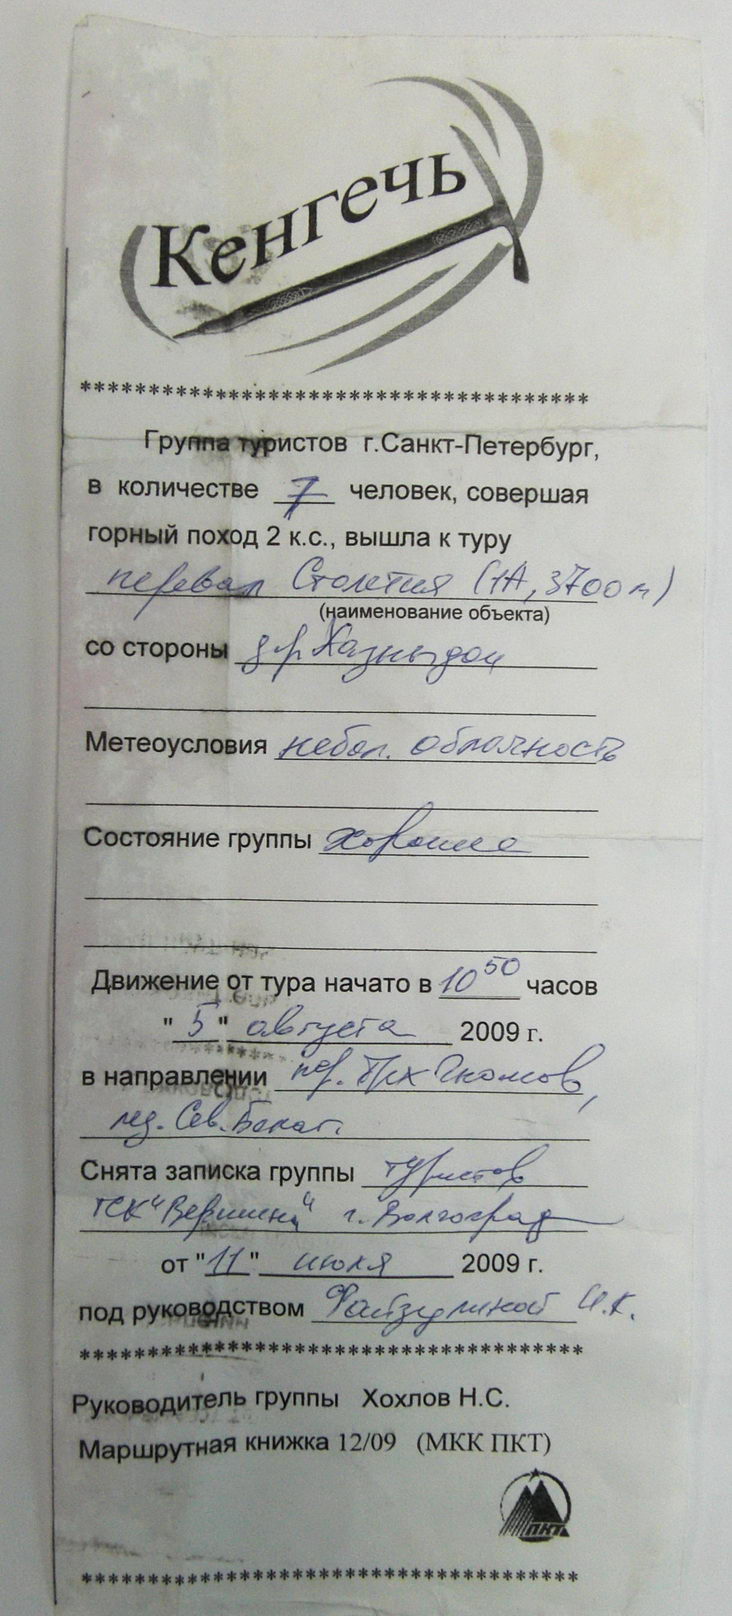 Кенгечь
***************************************
Группа туристов г.Санкт-Петербург,
в количестве 7 человек, совершая
горный поход 2 к.с., вышла к туру
перевал Столетия (1А, 3700м)
(наименование объекта)
со стороны д.р. Хазныдон
Метеоусловия небол. облачность
Состояние группы хорошее
Движение от тура начато в 10 50 часов
"5" августа 2009 г.
в направлении пер. Трех Гномов,
лед. Сев.
Снята записка группы туристов
ТСК "Вершина" г. Волгоград
от "11" июля 2009 г.
под руководством Файзулиной И.К.
***************************************
Руководитель группы Хохлов Н.С.
Маршрутная книжка 12/09 (МКК ПКТ)
ПКТ
***************************************